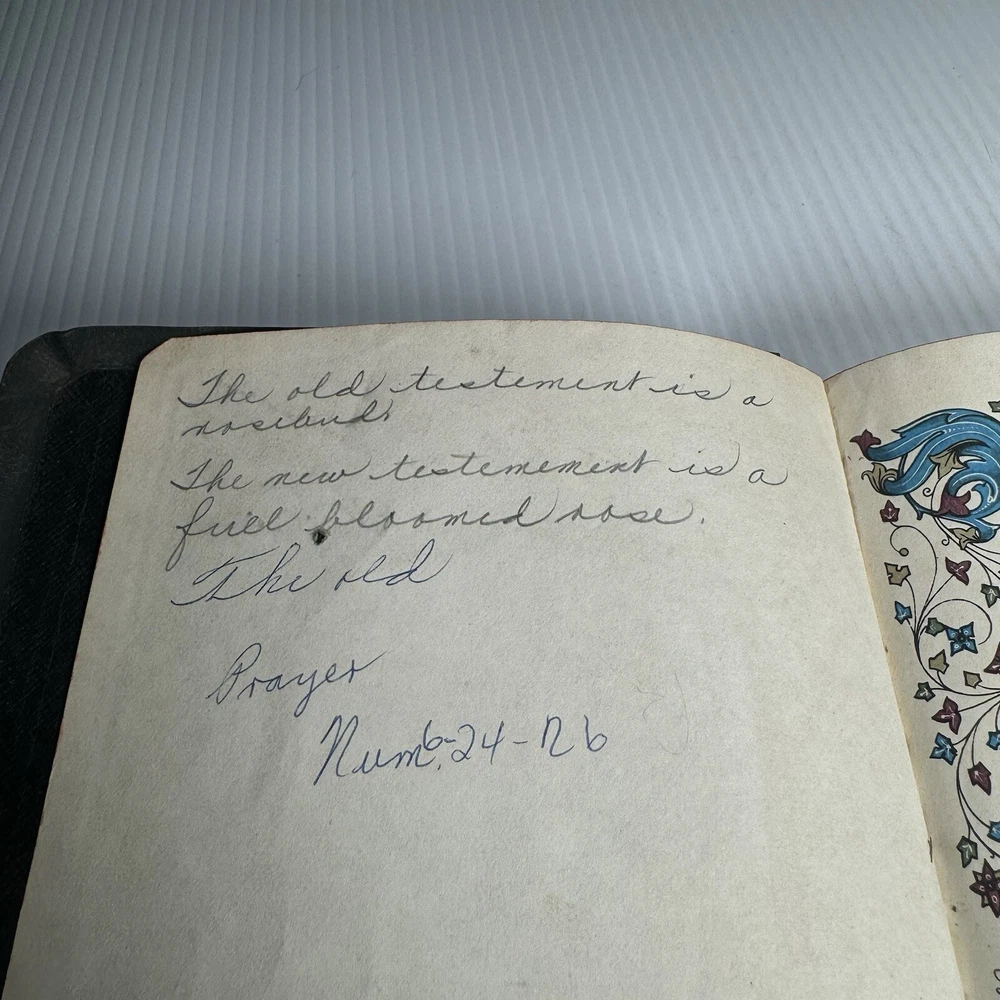 The old testement is a
rosebud.
The new testemement is a
full bloomed rose.
The old
Prayer
Num. 6-24-26